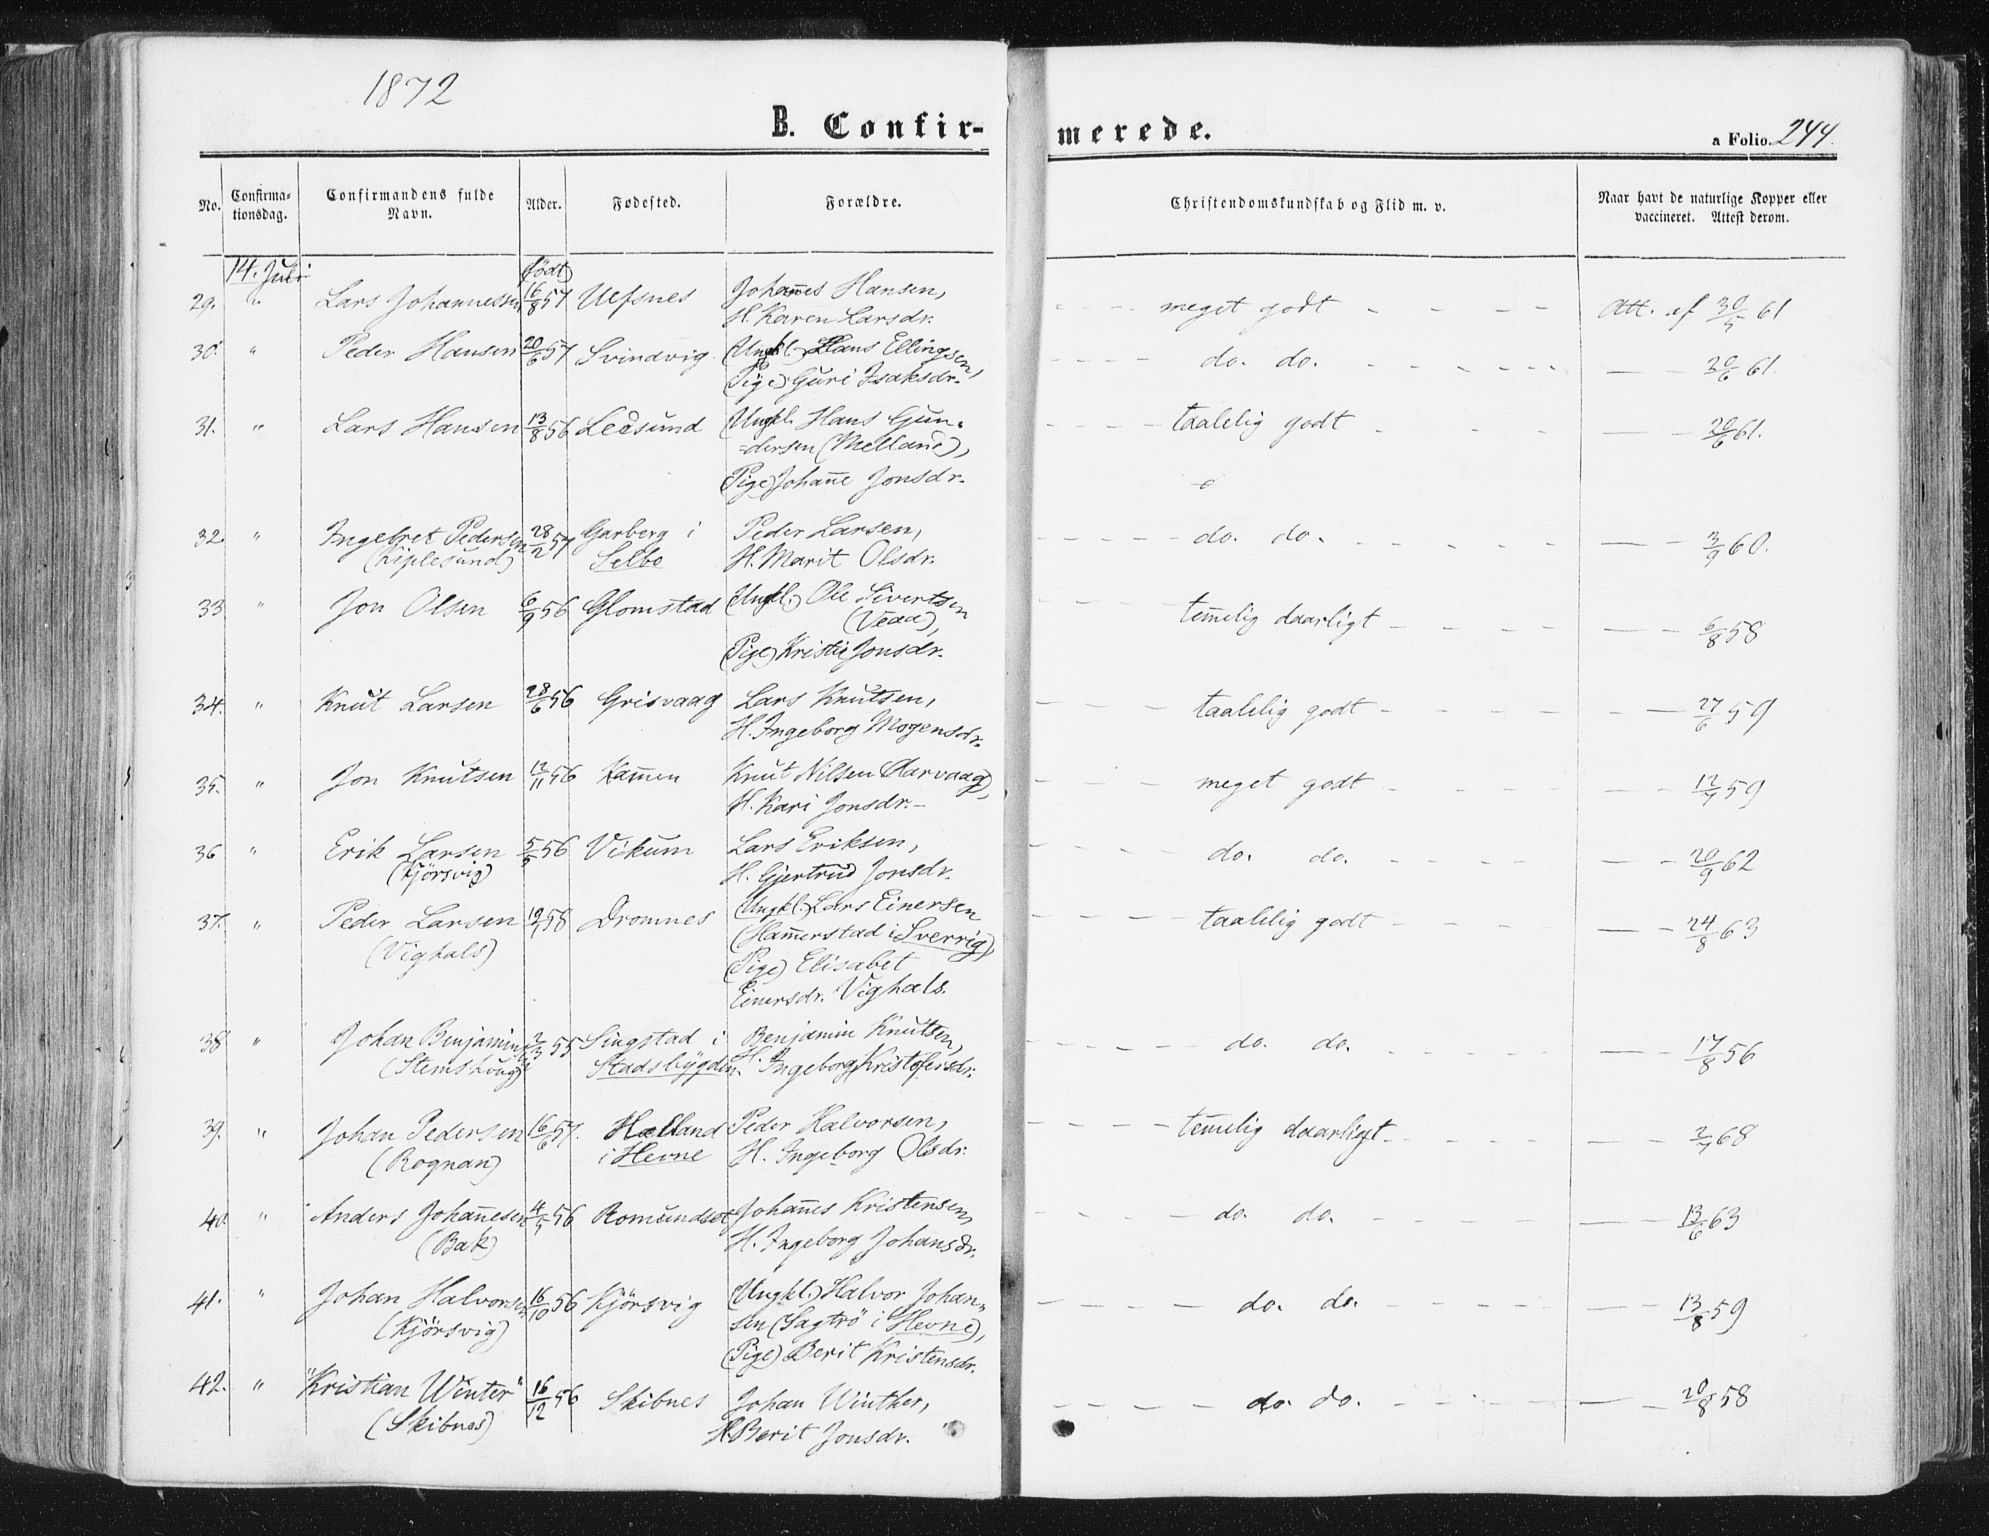 1872
B. Confir- merede.
a Folio. 244.
No. Confirma- tionsdag. Confirmandens fulde Navn. Alder. Fødested. Forældre. Christendomskundskab og Flid m. v. Naar havt de naturlige Kopper eller vaccineret. Attest derom.
14. Juli født
29. " Lars Johannessen 16/8 57 Uefsnes Johan̄es Hansen, meget godt Att. af 30/5 61
H. Karen Larsdr.
30. " Peder Hansen 20/6 57 Svindvig (Ungkl.) Hans Ellingsen, do. do. 20/6 61.
(Pige) Guri Isaksdr.
31. " Lars Hansen 13/8 56 Ledsund (Ungkl. Hans Gun- taalelig godt 20/6 61.
-dersen (Melland),
(Pige) Johan̄e Jonsdr.
32. " Ingebret Pedersen 28/2 57 Garberg i Peder Larsen, do. do. 3/9 60.
(Kiplesund) Selbo H. Marit Olsdr.
33 " Jon Olsen 6/9 56 Glomstad (Ungkl.) Ole Sivertsen tem̄elig daarligt 6/8 58
(Veaa),
(Pige) Kristie Jonsdr.
34. " Knut Larsen 28/6 56 Grisvaag Lars Knutsen, taalelig godt 27/6 59
H. Ingeborg Mogensdr.
35. " Jon Knutsen 12/11 56 Ham̄en Knut Nilsen (Aarvaag), meget godt 12/9 59
H. Kari Jonsdr.
36 " Erik Larsen 5/5 56 Vikum Lars Eriksen, do. do. 20/9 62
(Kjörsvig) H. Gjertrud Jonsdr.
37. " Peder Larsen 19/7 58 Dromnes (Ungkl.) Lars Einersen taalelig godt 24/8 63
(Vighals) (Ham̄erstad i Sverrig),
(Pige) Elisabet
Einersdr. Vighals.
38 " Johan Benjamins 2/3 55 Singstad i Benjamin Knutsen, do. do. 17/8 56
(Stemshaug) Stadsbygden. H. Ingeborg Kristofersdr.
39. " Johan Pedersen 16/6 57. Hælland Peder Halvorsen, tem̄elig daarligt 2/7 68
(Rognan) i Hevne H. Ingeborg Olsdr.
40 " Anders Johan̄esen 4/7 56 Romundset Johan̄es Kristensen, do. do. 13/6 63
(Bak) H. Ingeborg Johansdr.
41. " Johan Halvorsen 16/10 56 Kjörsvig (Ungkl.) Halvor Johan- do. do. 13/8 59
(Kjörsvig) sen (Sagtrö i Hevne),
(Pige) Berit Kristensdr.
42. " "Kristian Winter" 16/12 56 Skibnes Johan Winther, do. do. 20/8 58
(Skibnes) H. Berit Jonsdr.